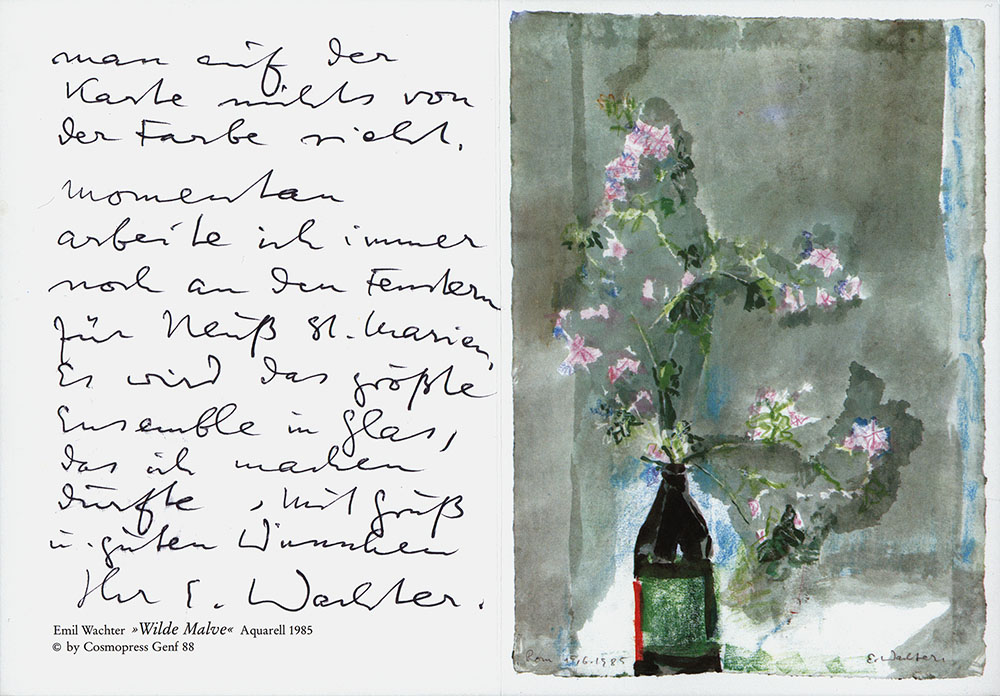 man auf der
Karte nichts von
der Farbe sieht.
Momentan
arbeite ich immer
noch an den Fenstern
für Neuß St. Marien,
Es wird das größte
Ensemble in Glas,
das ich machen
durfte, mit Gruß
u. guten Wünschen
Ihr E. Wachter.
Emil Wachter »Wilde Malve« Aquarell 1985
© by Cosmopress Genf 88
Rom 15.6.1985
E. Wachter.